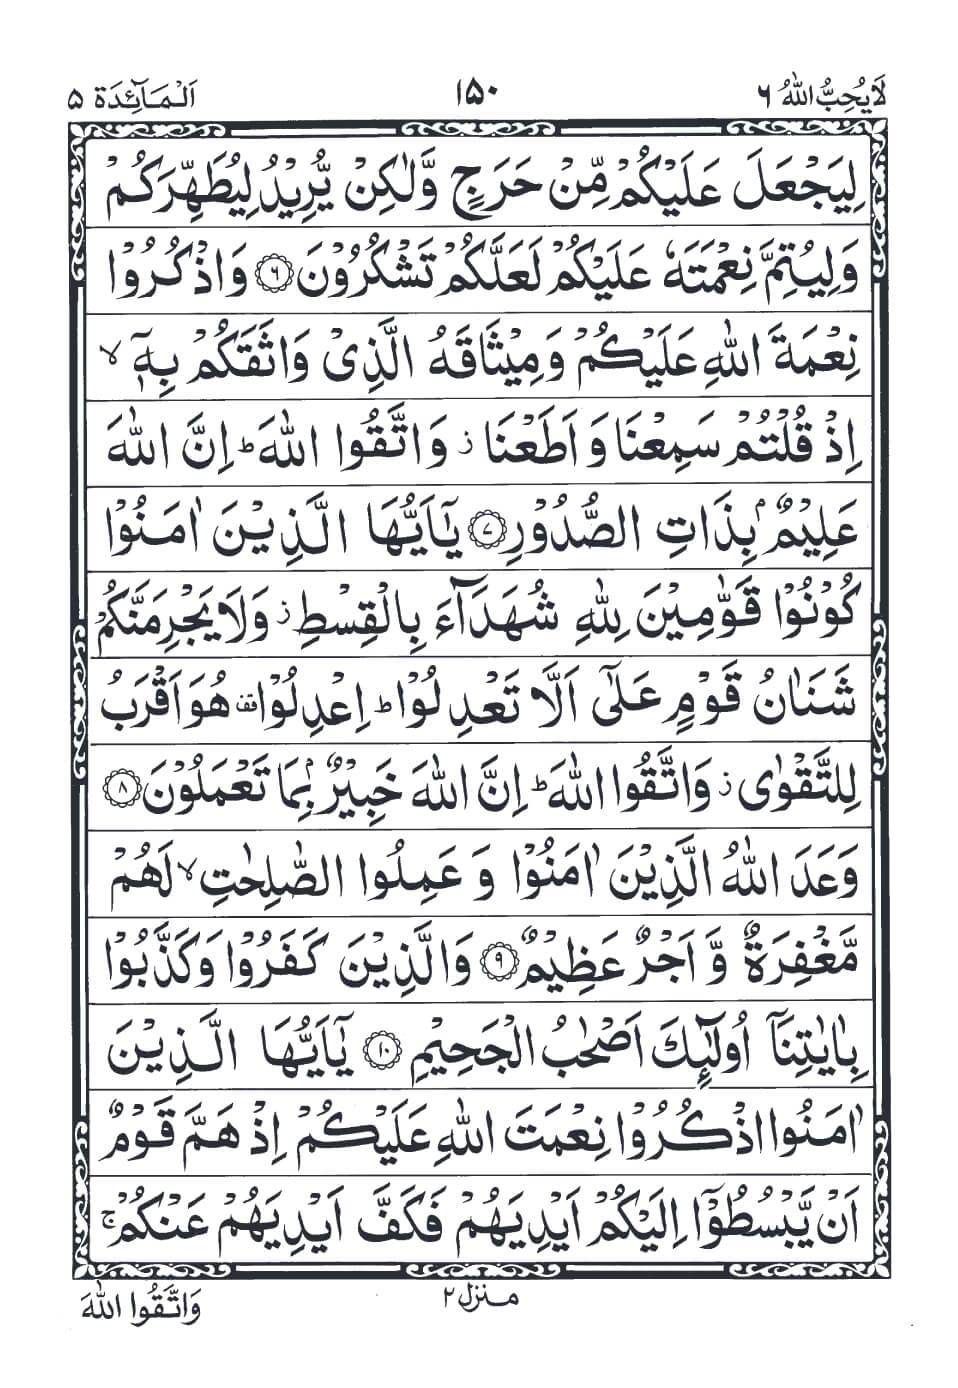 لَا يُحِبُّ اللّٰهُ ٦ ١٥٠ اَلْمَآئِدَة ٥
لِيَجْعَلَ عَلَيْكُمْ مِّنْ حَرَجٍ وَّلٰكِنْ يُّرِيْدُ لِيُطَهِّرَكُمْ
وَلِيُتِمَّ نِعْمَتَهٗ عَلَيْكُمْ لَعَلَّكُمْ تَشْكُرُوْنَ ٦ وَاذْكُرُوْا
نِعْمَةَ اللّٰهِ عَلَيْكُمْ وَمِيْثَاقَهُ الَّذِيْ وَاثَقَكُمْ بِهٖۤ ۙ
اِذْ قُلْتُمْ سَمِعْنَا وَاَطَعْنَا ز وَاتَّقُوا اللّٰهَ ؕ اِنَّ اللّٰهَ
عَلِيْمٌۢ بِذَاتِ الصُّدُوْرِ ٧ يٰۤاَيُّهَا الَّذِيْنَ اٰمَنُوْا
كُوْنُوْا قَوّٰمِيْنَ لِلّٰهِ شُهَدَآءَ بِالْقِسْطِ ز وَلَا يَجْرِمَنَّكُمْ
شَنَاٰنُ قَوْمٍ عَلٰۤى اَلَّا تَعْدِلُوْا ؕ اِعْدِلُوْا قف هُوَ اَقْرَبُ
لِلتَّقْوٰى ز وَاتَّقُوا اللّٰهَ ؕ اِنَّ اللّٰهَ خَبِيْرٌۢ بِمَا تَعْمَلُوْنَ ٨
وَعَدَ اللّٰهُ الَّذِيْنَ اٰمَنُوْا وَعَمِلُوا الصّٰلِحٰتِ ۙ لَهُمْ
مَّغْفِرَةٌ وَّاَجْرٌ عَظِيْمٌ ٩ وَالَّذِيْنَ كَفَرُوْا وَكَذَّبُوْا
بِاٰيٰتِنَاۤ اُولٰٓئِكَ اَصْحٰبُ الْجَحِيْمِ ١٠ يٰۤاَيُّهَا الَّذِيْنَ
اٰمَنُوا اذْكُرُوْا نِعْمَتَ اللّٰهِ عَلَيْكُمْ اِذْ هَمَّ قَوْمٌ
اَنْ يَّبْسُطُوْۤا اِلَيْكُمْ اَيْدِيَهُمْ فَكَفَّ اَيْدِيَهُمْ عَنْكُمْ ۚ
منزل ٢
وَاتَّقُوا اللّٰهَ